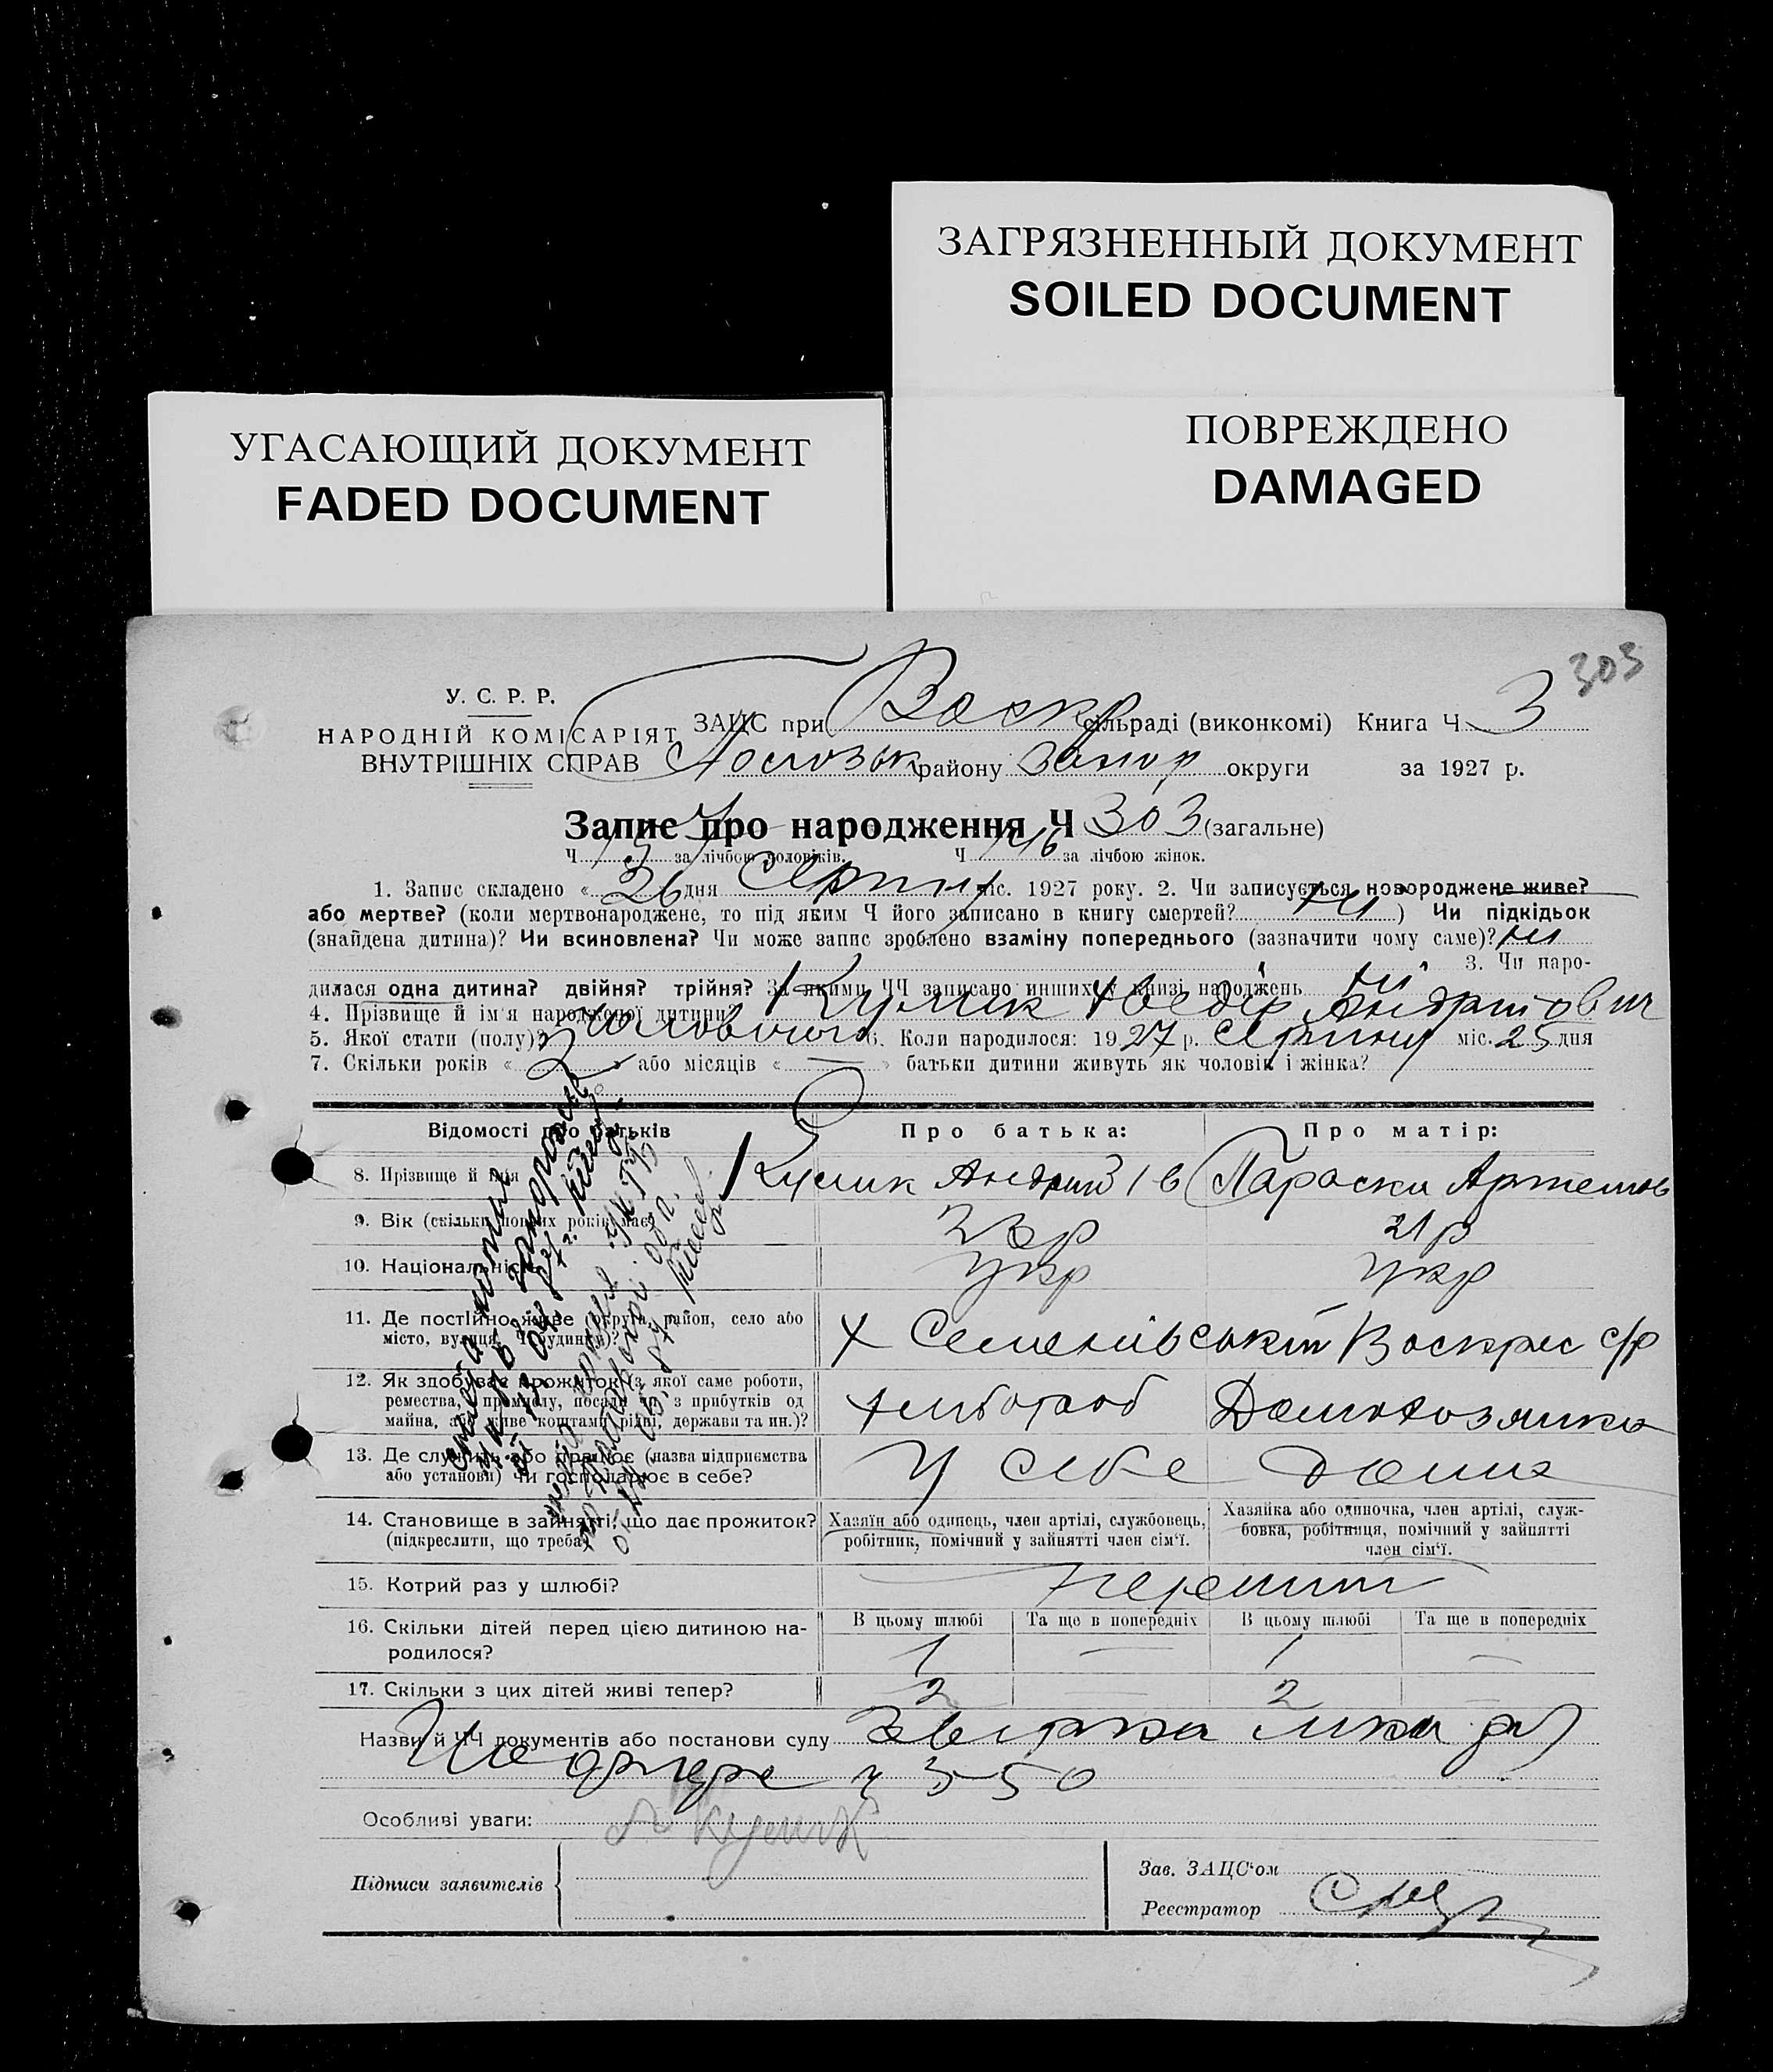 ЗАГРЯЗНЕННЫЙ ДОКУМЕНТ
SOILED DOCUMENT
УГАСАЮЩИЙ ДОКУМЕНТ
FADED DOCUMENT
ПОВРЕЖДЕНО
DAMAGED
303
У. С. Р. Р.
НАРОДНІЙ КОМІСАРІЯТ
ВНУТРІШНІХ СПРАВ
ЗАЦС при Воскр сільраді (виконкомі) Книга Ч 3
району Запор округи за 1927 р.
Запис про народження Ч 303 (загальне)
Ч за лічбою чоловіків. Ч 146 за лічбою жінок.
1. Запис складено « 26 дня Серпня міс. 1927 року. 2. Чи записується новороджене живе?
або мертве? (коли мертвонароджене, то під яким Ч його записано в книгу смертей? ні) Чи підкідьок
(знайдена дитина)? Чи всиновлена? Чи може запис зроблено взаміну попереднього (зазначити чому саме)? ні
3. Чи наро-
дилася одна дитина? двійня? трійня? За якими ЧЧ записано инших у книзі народжень ні
4. Прізвище й ім'я народженої дитини? Кулик Андрійович
5. Якої стати (полу)? Чоловічого 6. Коли народилося: 1927 р. Серпня міс. 25 дня
7. Скільки років « 2 » або місяців « — » батьки дитини живуть як чоловік і жінка?
Відомості про батьків
Про батька:
Про матір:
8. Прізвище й ім'я Кулик Андрій Параска Артемов
9. Вік (скільки повних років має) 23р 21р
10. Національність Укр Укр
11. Де постійно живе (округа, район, село або
місто, вулиця, Ч будинку)?
х Семенівський Воскрес с/р
12. Як здобуває прожиток (з якої саме роботи,
ремества, промислу, посади чи з прибутків од
майна, або живе коштами рідні, держави та ин.)?
хлібороб Домохозяйка
13. Де служить або працює (назва підприємства
або установи) чи господарює в себе?
У себе дома
14. Становище в зайнятті, що дає прожиток?
(підкреслити, що треба)
Хазяїн або одинець, член артілі, службовець,
робітник, помічний у зайнятті член сім'ї.
Хазяйка або одиночка, член артілі, служ-
бовка, робітниця, помічний у зайнятті
член сім'ї.
15. Котрий раз у шлюбі? перший
16. Скільки дітей перед цією дитиною на-
родилося?
В цьому шлюбі Та ще в попередніх В цьому шлюбі Та ще в попередніх
1 — 1 —
17. Скільки з цих дітей живі тепер? 2 — 2 —
Назви й ЧЧ документів або постанови суду
350
Особливі уваги: А Кулик
Підписи заявителів
Зав. ЗАЦС'ом
Реєстратор